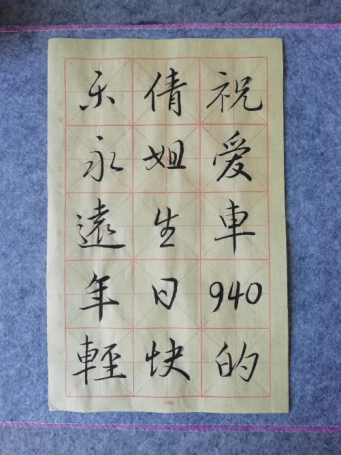 祝爱車940的
倩姐生日快
乐永遠年輕